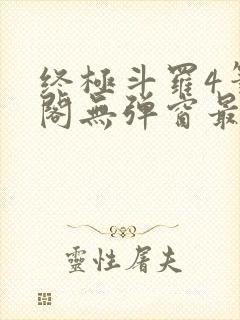 终極斗羅4
閣無弹窗最
靈性屠夫